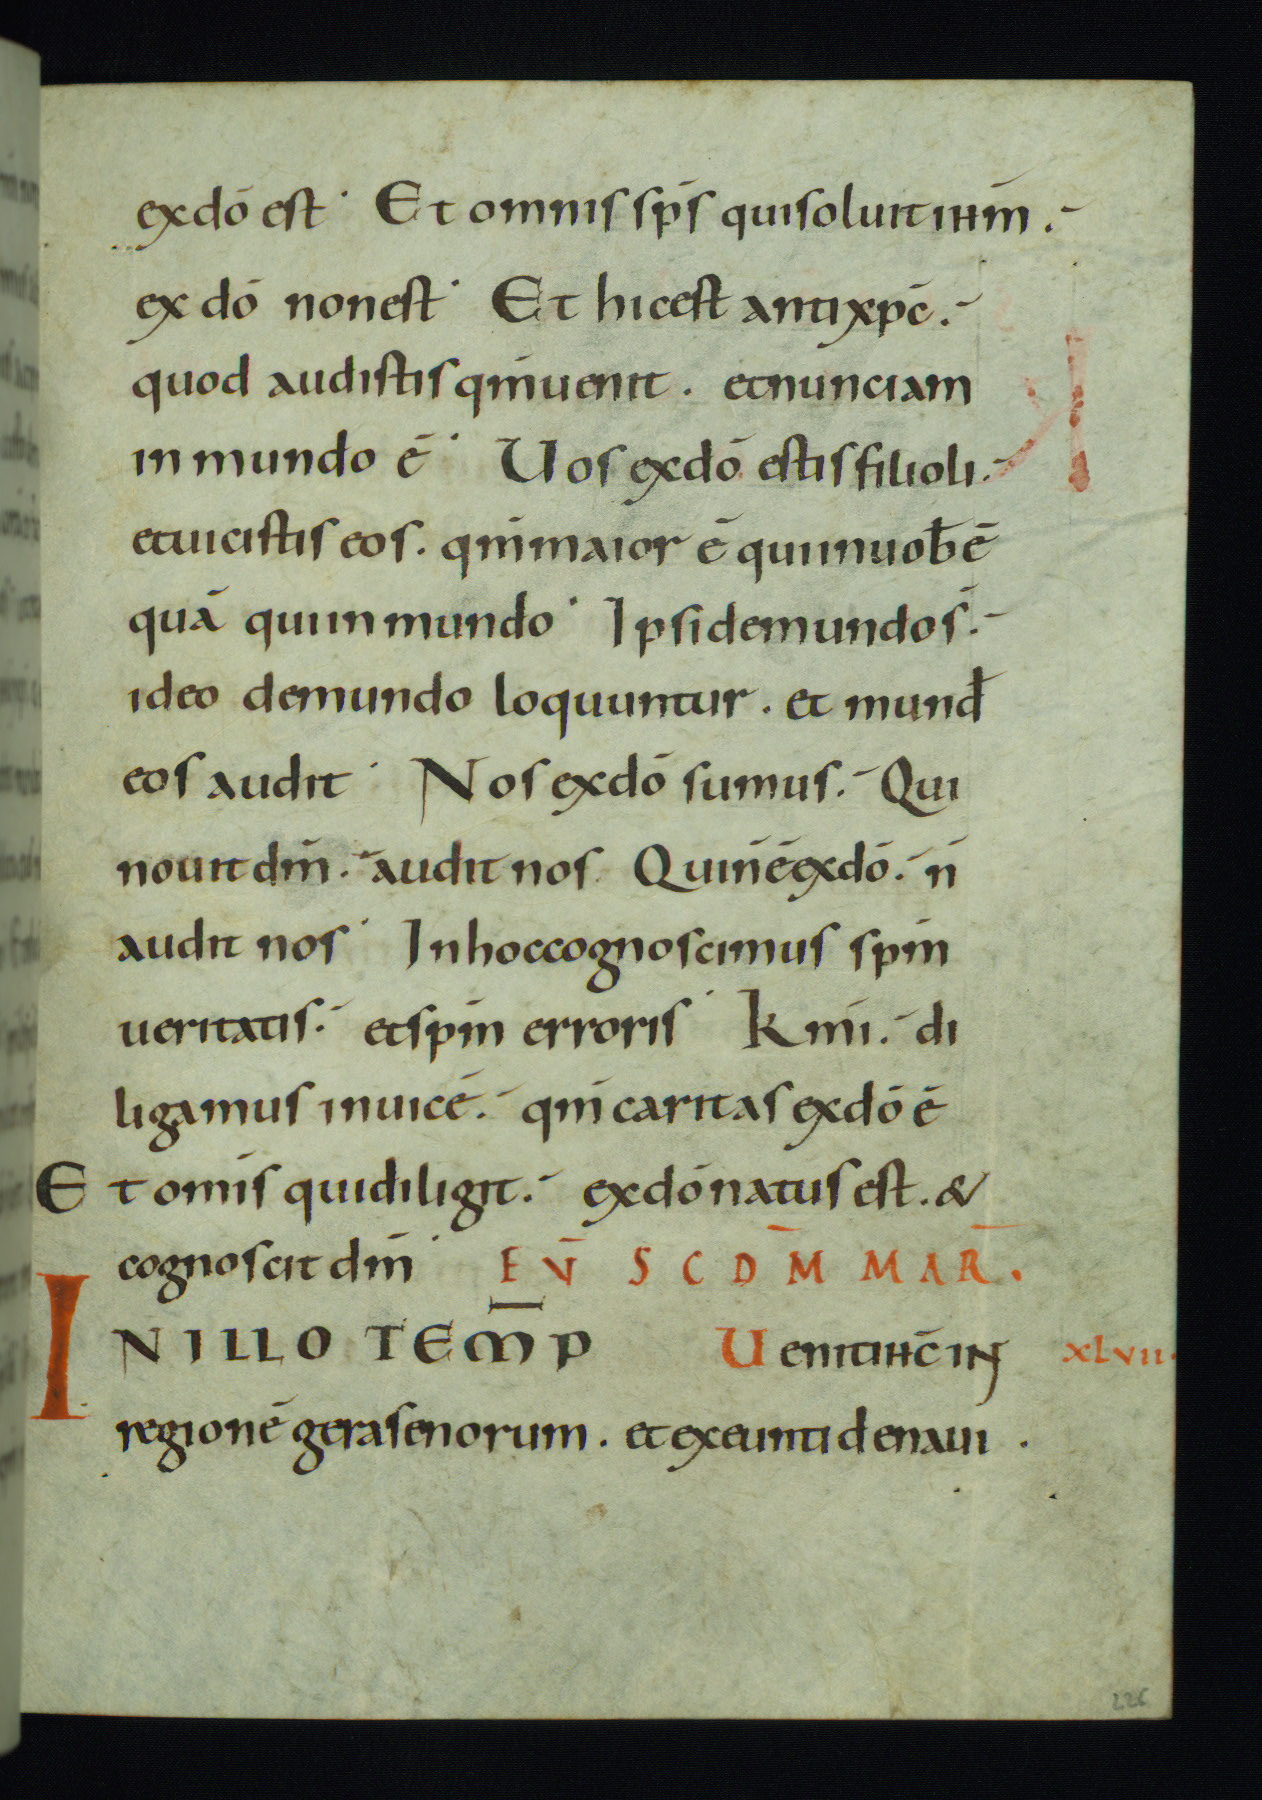 exdō est· Et omnis sp̄s quisoluit ihm̄.
ex dō non est· Et hic est antixp̄c.
quod audistis qm̄ uenit. et nunc iam
in mundo ē· Uos exdō estis filioli.
et uicistis eos. qm̄ maior ē qui in uob̄ ē
quā qui in mundo· Ipsi de mundo s̄.
ideo de mundo loquuntur. et mund̄
eos audit· Nos exdō sumus. Qui
nouit dm̄. audit nos Qui n̄ ē exdō. n̄
audit nos· In hoc cognoscimus sp̄m
ueritatis. et sp̄m erroris· Km̄i. di
ligamus inuicē. qm̄ caritas exdō ē
Et om̄is qui diligit. exdō natus est. &
cognoscit dm̄· EV̄ SCD̄M MAR̄.
IN ILLO TEM̄P Uenit ih̄c in
XLVII.
regionē gerasenorum. et exeunti de naui.
226